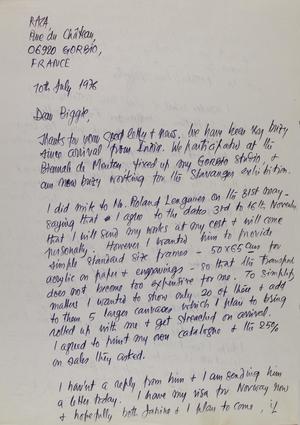 RAZA,
Rue du Château,
06920 GORBIO,
FRANCE
10th July 1976
Dear Biggle,
Thanks for your good letter & news. We have been very busy
since arrival from India. We participated at the
Biennale de Menton, fixed up my GORBIO studio, &
am now busy working for the Stavanger exhibition.
I did write to Mr. Roland Lengauer on the 31st May -
saying that I agree to the dates 3rd to 16th November
that I will send my works at my cost & will come
personally. However I wanted him to provide
simple standard size frames - 50x65 cms for
acrylic on paper & engravings - so that the transport
does not become too expensive for me. To simplify
matters I wanted to show only 20 of these & add
to them 5 larger canvases which I plan to bring
rolled up with me & get stretched on arrival.
I agreed to print my own catalogue & the 25%
on sales they asked.
I havn't a reply from him & I am sending him
a letter today. I have my visa for Norway now
& hopefully both Janine & I plan to come, if